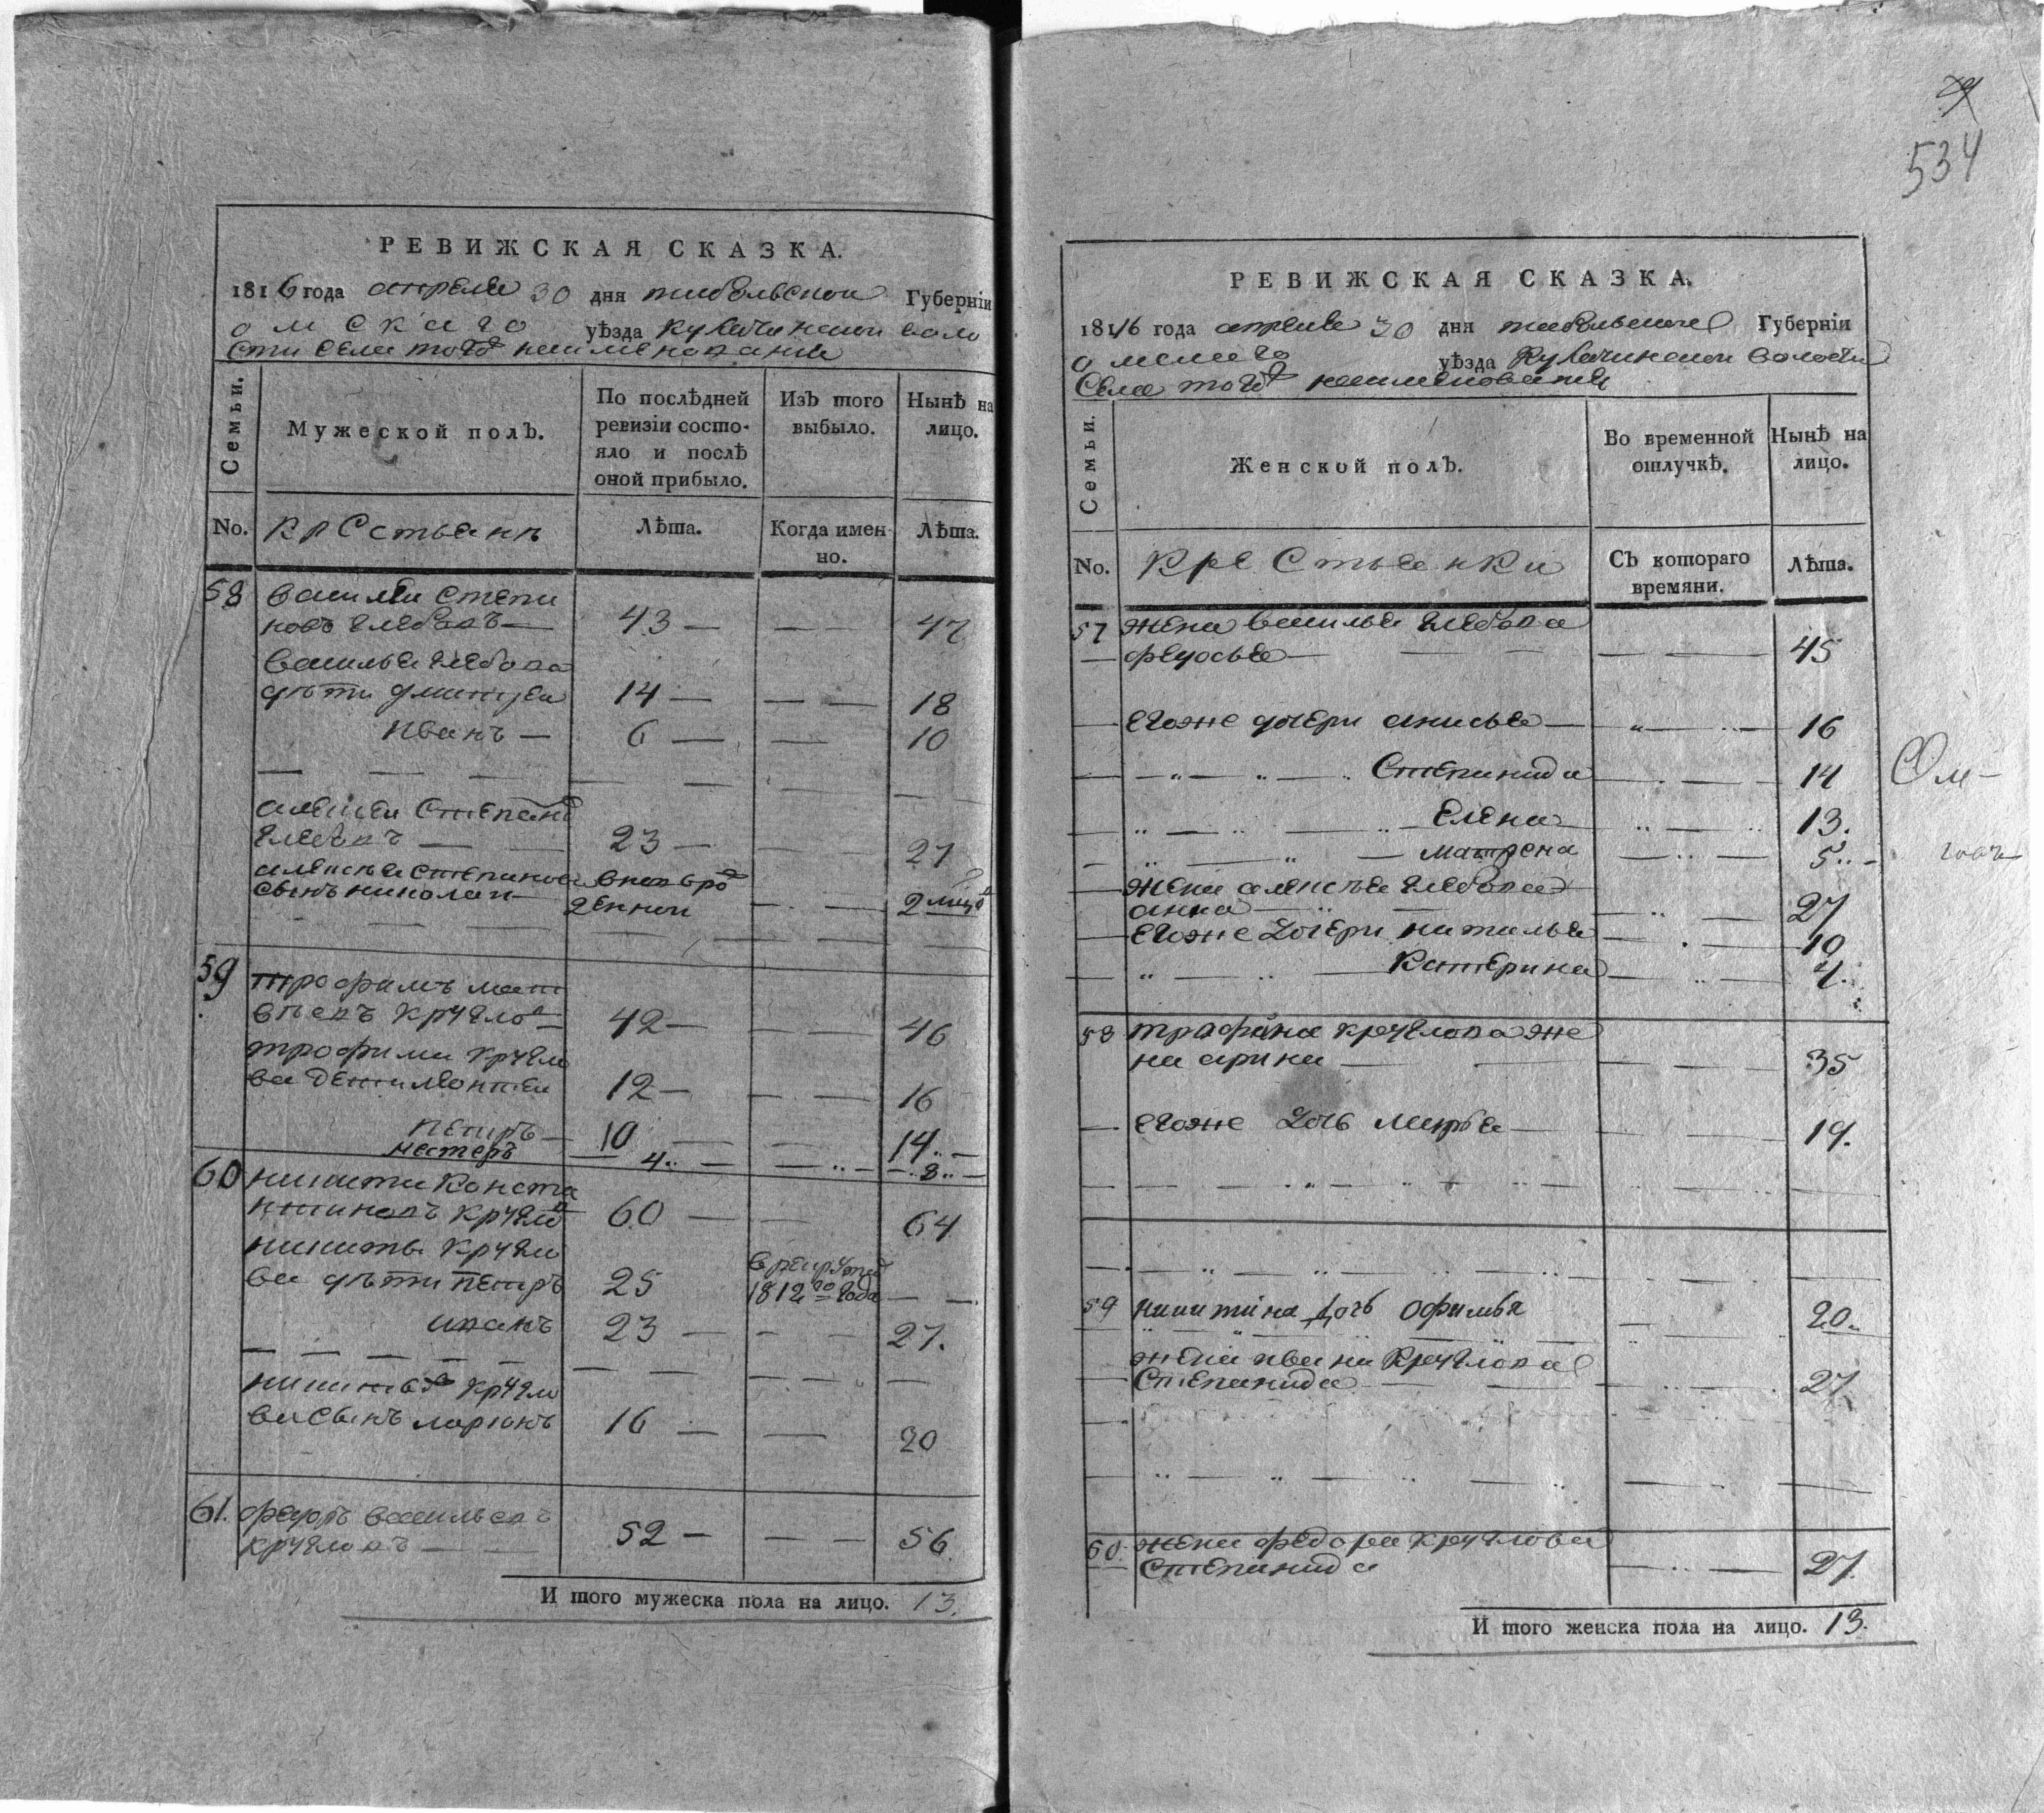 РЕВИЖСКАЯ СКАЗКА.
1816 года апреля 30 дня тобольской Губерніи
омскаго уѣзда Кулачинской воло
сти села тогож наименования
Семьи.
Мужеской полъ.
По послѣдней ревизіи состо-
яло и послѣ оной прибыло.
Изъ того выбыло.
Нынѣ на лицо.
No. Крестьянъ
Лѣта.
Когда имен
но.
Лѣта.
58 василей степа
новъ глебовъ 43 — — 47
василья глебова
дѣти дмитрей 14 — — 18
иванъ 6 — — 10
алексеи степанов
глебовъ 23 — — 27
алексея степанова вновь рож
сынъ николаи денной — 2
59 трофимъ мат
веевъ круглов 42 — — 46
трофима кругло
ва дети леонтеи 12 — — 16
петръ 10 — — 14
нестеръ 4 — — 8
60 никита конста
нтиновъ круглов 60 — — 64
никиты кругло
ва дѣти петръ 25 в рекруты 1812го года
иванъ 23 — — 27.
кругло
ва сынъ ларионъ 16 — — 20
61. федоръ васильевъ
кругловъ 52 — — 56
И того мужеска пола на лицо. 13.
534
РЕВИЖСКАЯ СКАЗКА.
1816 года апреля 30 дня тобольской Губерніи
омскаго уѣзда Кулачинской волости
села тогож наименования
Семьи.
Женской полъ.
Во временной отлучкѣ.
Нынѣ на лицо.
No. Крестьянки
Съ котораго времяни.
Лѣта.
57 жена василья глебова
федосья — — 45
егоже дочери анисья — 16
степанида — 14
елена — 13.
матрена — 5
жена алексея глебова
анна — 27
егоже дочери наталья — 10
катерина — 4.
58 трафима круглова же
на арина — 35
егоже дочь марья — 19.
59 никитина дочь офимья — 20
жена ивана круглова
степанида — 27
60. жена федора круглова
степанида — 27.
И того женска пола на лицо. 13.